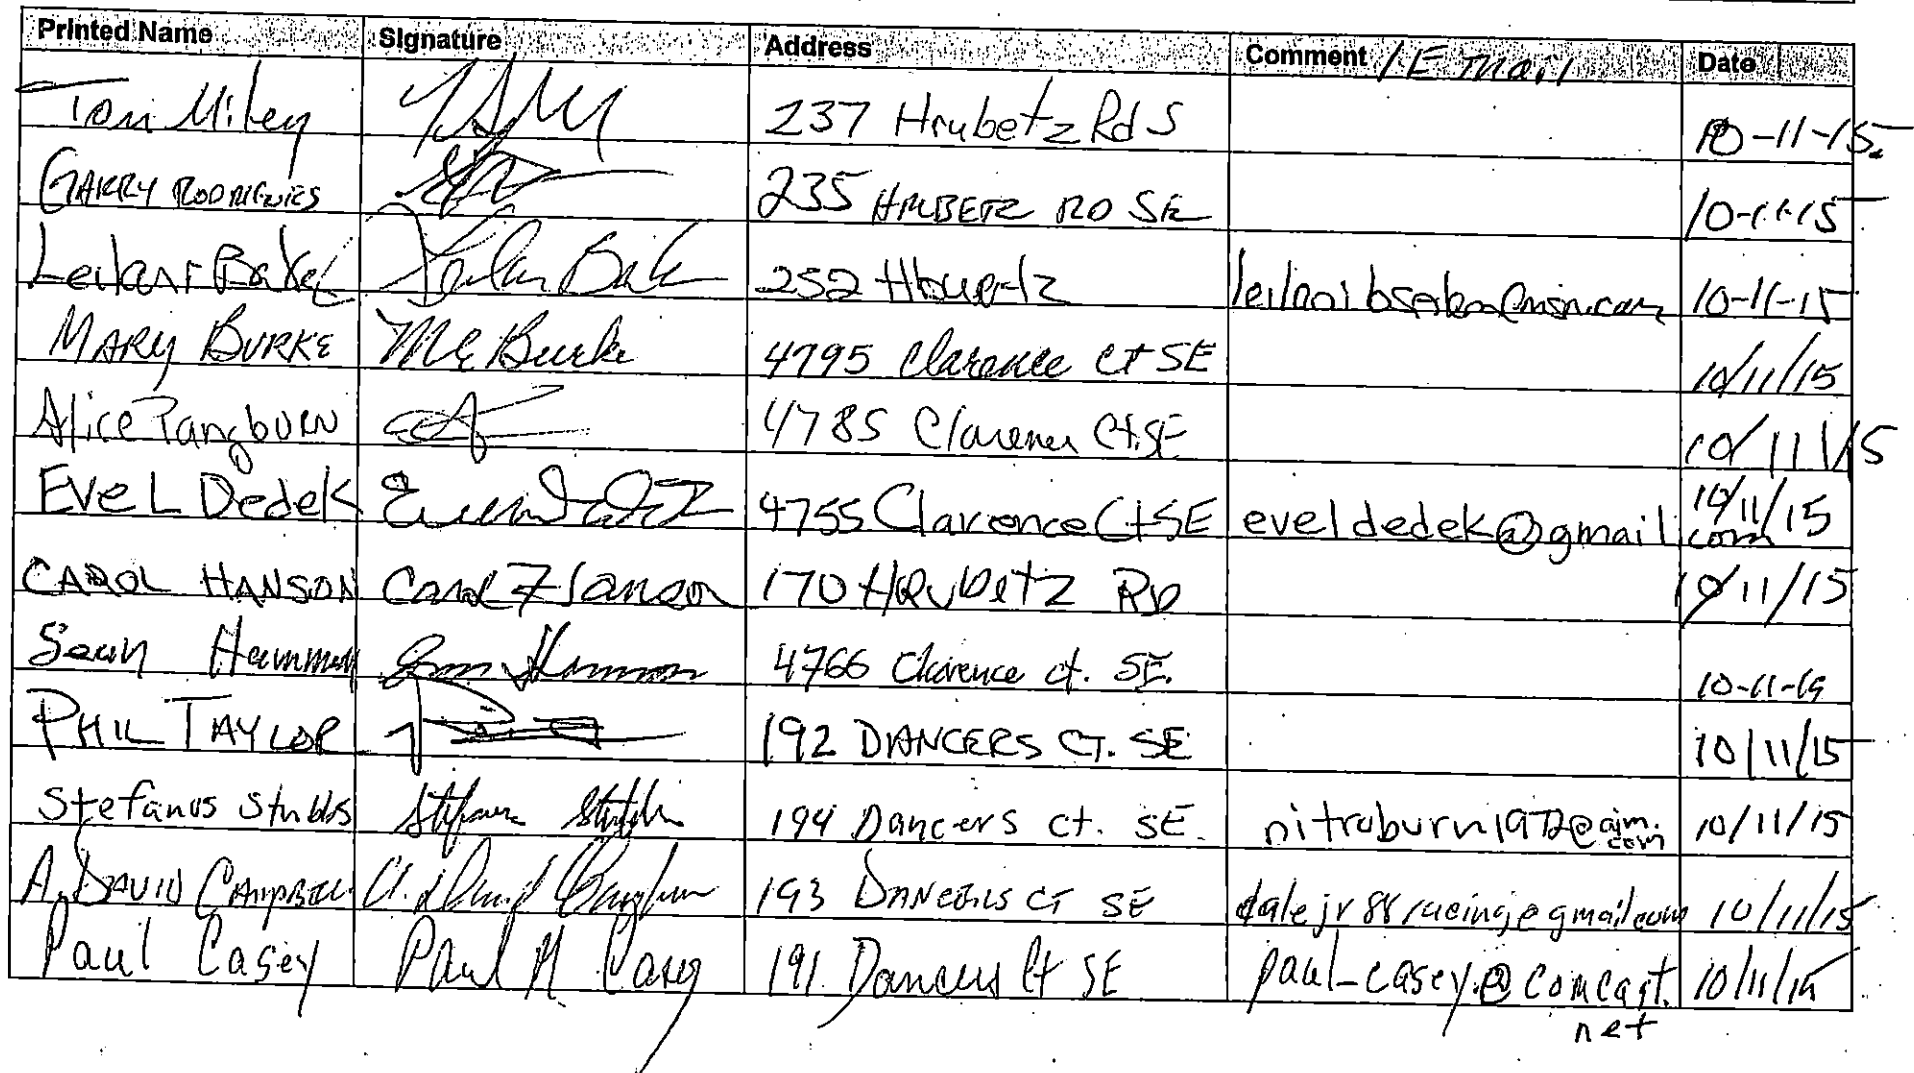 Printed Name Signature Address Comment / Email Date
Tom Miley 237 Hrubetz Rd S 10-11-15
GARRY RODRIGUES 235 HRUBETZ RD SE 10-11-15
Leilani Baker Leilani Baker 252 Hbuertz 10-11-15
MARY BURKE ME Burke 4795 Clarence Ct SE 10/11/15
Alice Pangburn 4785 Clarence Ct. SE 10/11/15
Eve L Dedek 4755 Clarence Ct SE eveldedek@gmail. 10/11/15
com
CAROL HANSON Carol Hanson 170 HRubetz RD 10/11/15
Sean 4766 Clarence ct. SE.
PHIL TAYLOR 192 DANCERS CT. SE 10/11/15
Stefanus Stubbs 194 Dancers ct. SE. nitroburn1972@aim. 10/11/15
com
A. DAVID CAMPBELL 193 DANCERS CT SE dalejr88racing@gmail.com 10/11/15
Paul Casey Paul M Casey 191 Dancers Ct SE paul_casey@comcast. 10/11/15
net